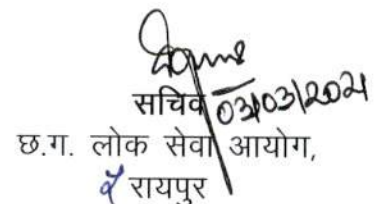 सचिव 03/03/2021
छ.ग. लोक सेवा आयोग,
रायपुर